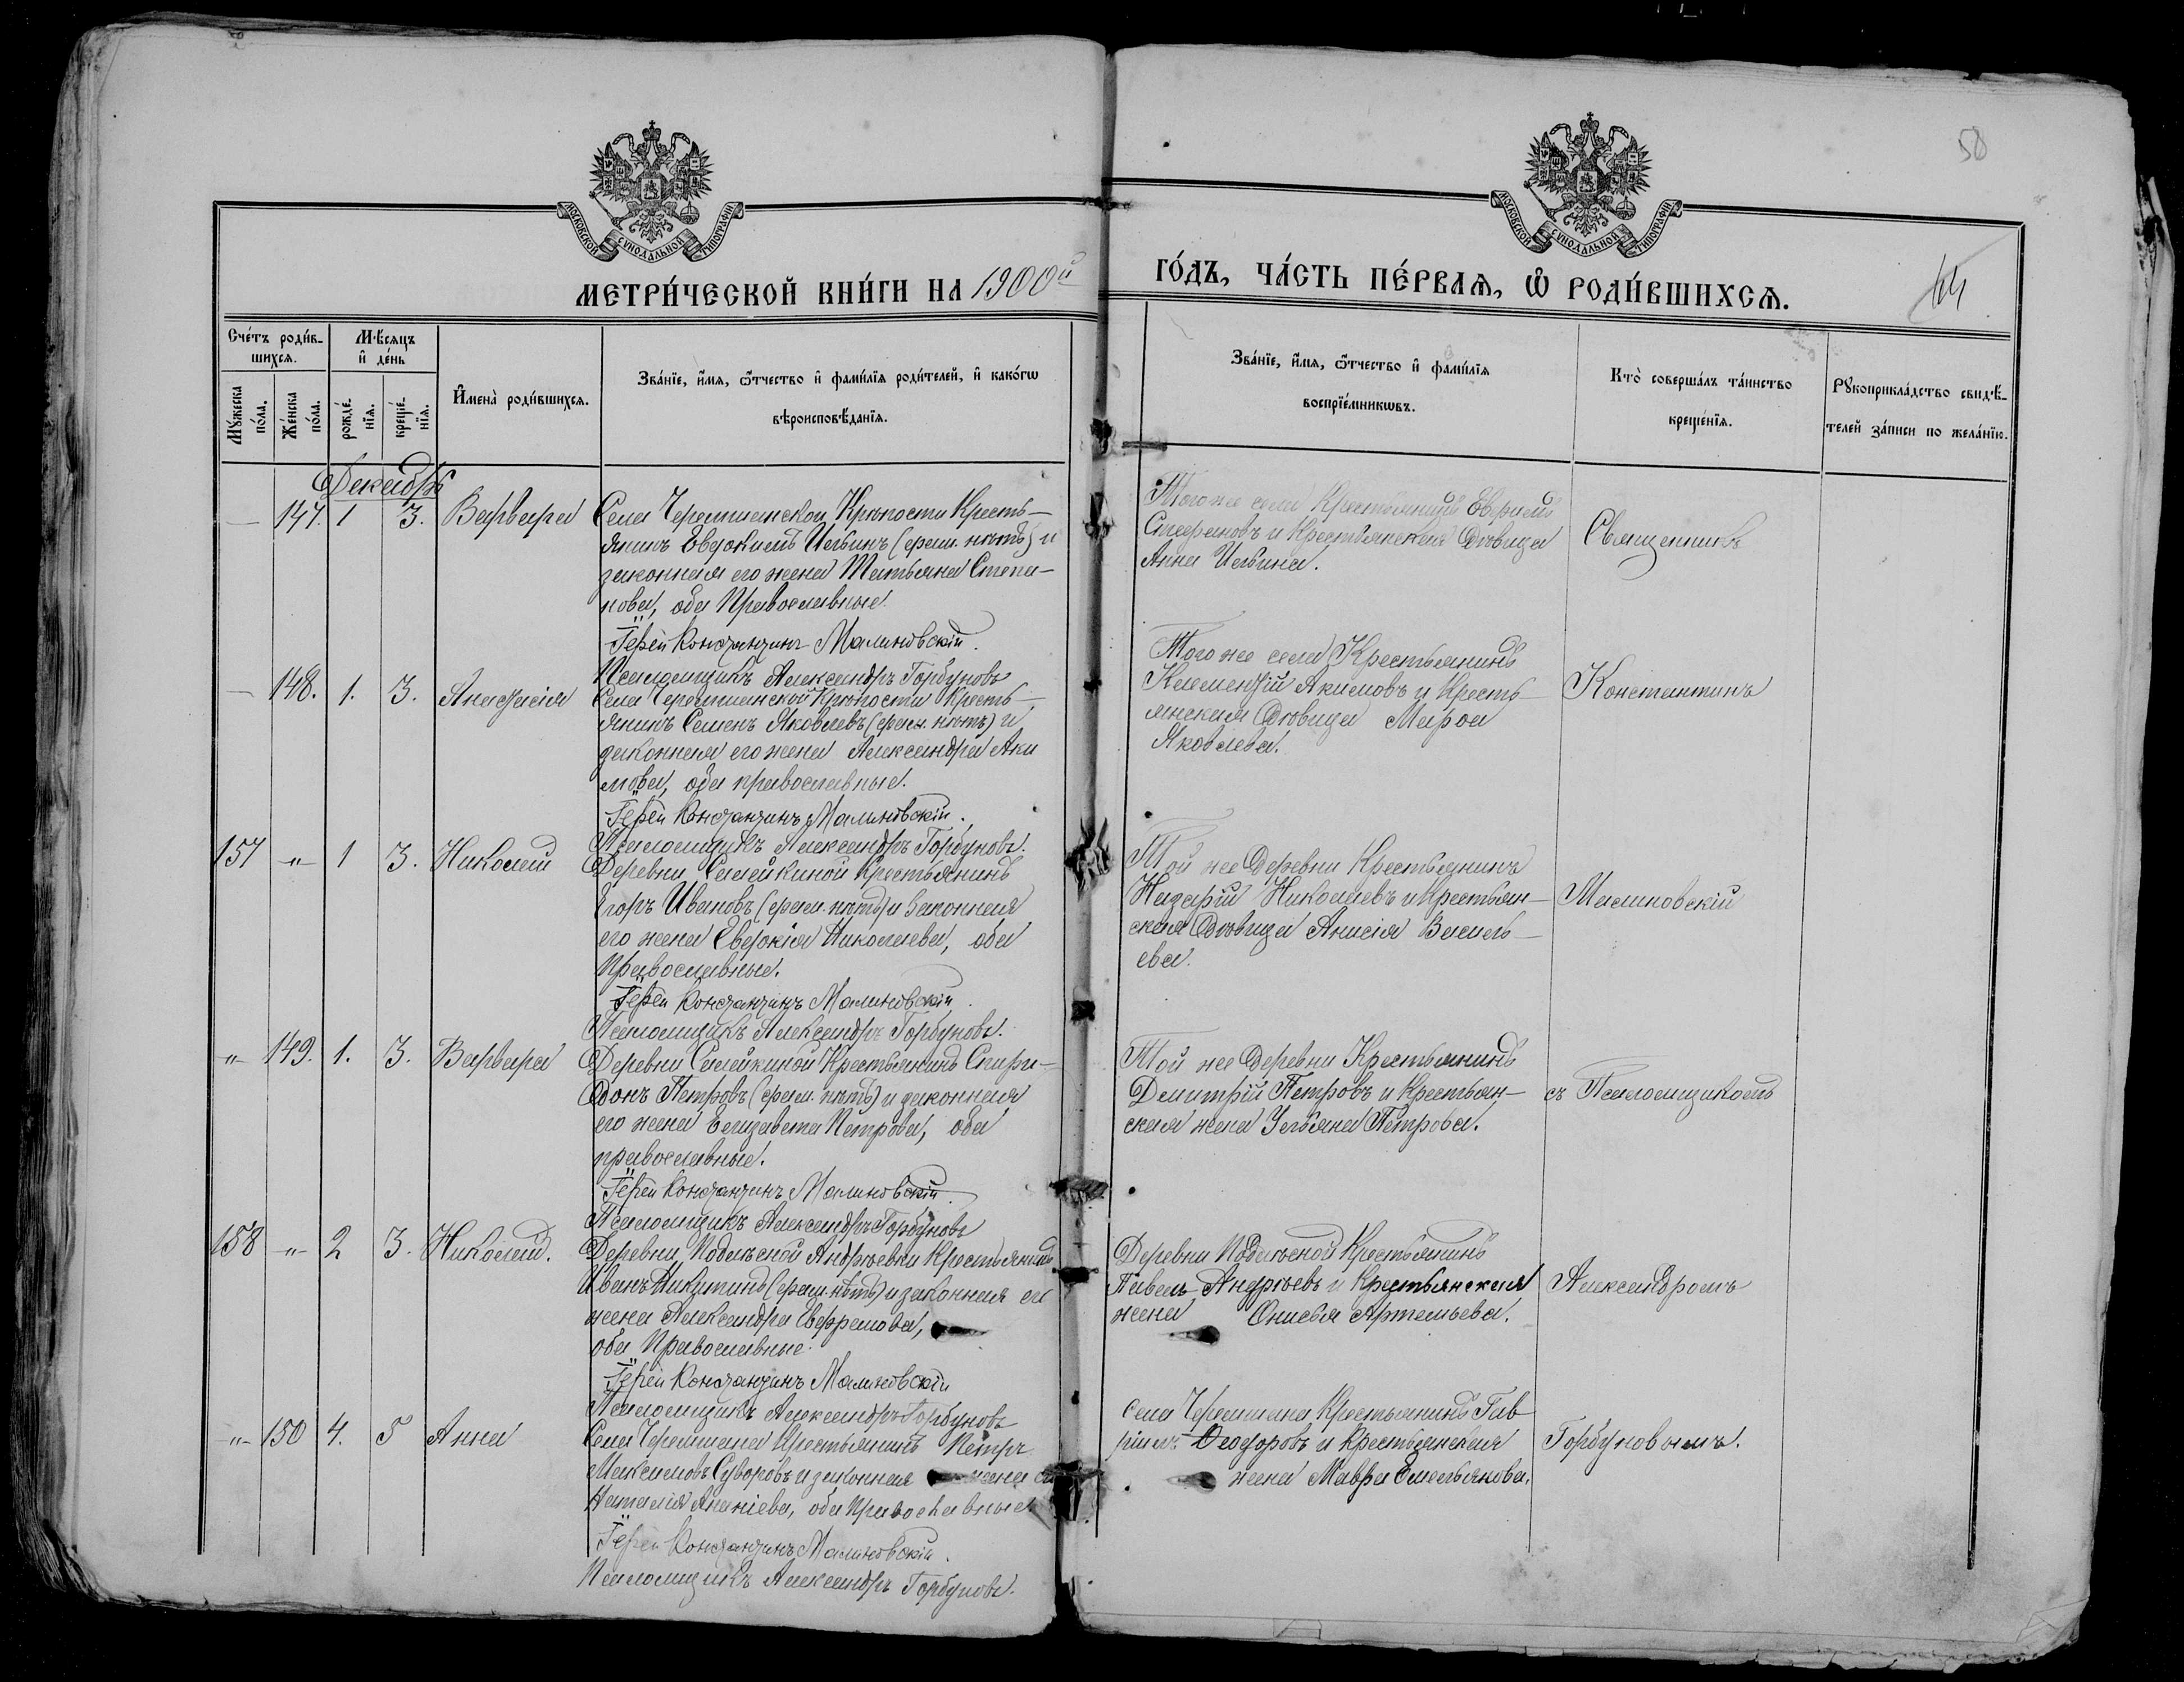 50
МОСКОВСКОЙ СѴНОДАЛЬНОЙ ТИПОГРАФІИ
МОСКОВСКОЙ СѴНОДАЛЬНОЙ ТИПОГРАФІИ
МЕТРИ́ЧЕСКОЙ КНИ́ГИ НА 1900й
ГО́ДЪ, ЧА́СТЬ ПЕ́РВАѦ, Ѡ РОДИ́ВШИХСѦ.
44
Сче́тъ роди́в-
шихсѧ.
Мꙋ́жеска
по́ла.
Же́нска
по́ла.
Мѣ́сѧцъ
и҆ де́нь
рожде́-
нїѧ.
креще́-
нїѧ.
И҆мена̀ роди́вшихсѧ.
Зва́нїе, и҆́мѧ, ѻ҆́тчество и҆ фами́лїѧ роди́телей, и҆ како́гѡ
вѣроисповѣ́данїѧ.
Зва́нїе, и҆́мѧ, ѻ҆́тчество и҆ фами́лїѧ
воспрїе́мникѡвъ.
Кто̀ соверша́лъ та́инство
креще́нїѧ.
Рꙋкоприкла́дство свидѣ́-
телей за́писи по жела́нїю.
Декабрь
— 147. 1 3. Варвара
Села Черемшанской Крѣпости Кресть-
янинъ Евдокимъ Ильинъ (фам. нѣтъ) и
законная его жена Татьяна Степа-
нова, оба Православные.
Іерей Константинъ Малиновскій.
Псаломщикъ Александръ Горбуновъ
Того же села Крестьянинъ Ефремъ
Стефановъ и Крестьянская Дѣвица
Анна Ильина.
Священникъ
— 148. 1. 3. Анастасія
Села Черемшанской Крѣпости Кресть-
янинъ Семенъ Яковлевъ (фам. нѣтъ) и
законная его жена Александра Аки
мова, оба православные.
Іерей Константинъ Малиновскій.
Псаломщикъ Александръ Горбуновъ.
Того же села Крестьянинъ
Климентій Акимовъ и Кресть-
янская Дѣвица Марфа
Яковлева.
Константинъ
157 „ 1 3. Николай
Деревни Семейкиной Крестьянинъ
Егоръ Ивановъ (фам. нѣтъ) и Законная
его жена Евдокія Николаева, оба
Православные.
Іерей Константинъ Малиновскій.
Псаломщикъ Александръ Горбуновъ.
Той же Деревни Крестьянинъ
Назарій Николаевъ и Крестьян-
ская Дѣвица Анисія Василь-
ева.
Малиновскій
„ 149. 1. 3. Варвара
Деревни Семейкиной Крестьянинъ Спири-
донъ Петровъ (фам. нѣтъ) и законная
его жена Елизавета Петрова, оба
православные.
Іерей Константинъ Малиновскій.
Псаломщикъ Александръ Горбуновъ
Той же Деревни Крестьянинъ
Димитрій Петровъ и Крестьян-
ская жена Ульяна Петрова.
съ Псаломщикомъ
158 „ 2 3. Николай.
Деревни Подлѣсной Андрѣевки Крестьянинъ
Иванъ Никитинъ (фам. нѣтъ) и законная его
жена Александра Евфремова,
оба Православные.
Іерей Константинъ Малиновскій
Псаломщикъ Александръ Горбуновъ
Деревни Подлѣсной Крестьянинъ
Павелъ Андрѣевъ и Крестьянская
жена Онисья Артемьева.
Александромъ
„ 150 4. 5 Анна
Села Черемшана Крестьянинъ Петръ
Максимовъ Суворовъ и законная жена его
Наталія Ананіева, оба православные
Іерей Константинъ Малиновскій.
Псаломщикъ Александръ Горбуновъ.
Села Черемшана Крестьянинъ Гав
ріилъ Ѳеодоровъ и Крестьянская
жена Мавра Емельянова.
Горбуновымъ.